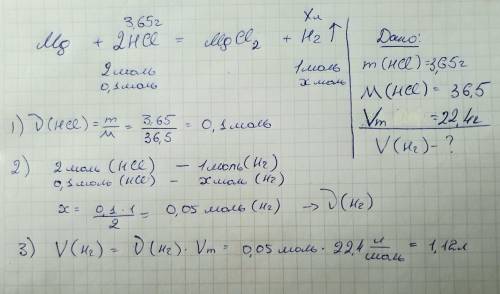 3,65г
Xл
Mg + 2HCl = MgCl₂ + H₂ ↑
2моль 1моль
0,1моль xмоль
Дано:
m(HCl)=3,65г
M(HCl) = 36,5
Vm =22,4г
V(H₂) - ?
1) ν(HCl) = m/M = 3,65/36,5 = 0,1моль
2) 2моль (HCl) — 1моль(H₂)
0,1моль(HCl) - xмоль(H₂)
x = 0,1·1/2 = 0,05моль(H₂) → ν(H₂)
3) V(H₂) = ν(H₂)·Vm = 0,05моль·22,4 л/моль = 1,12л